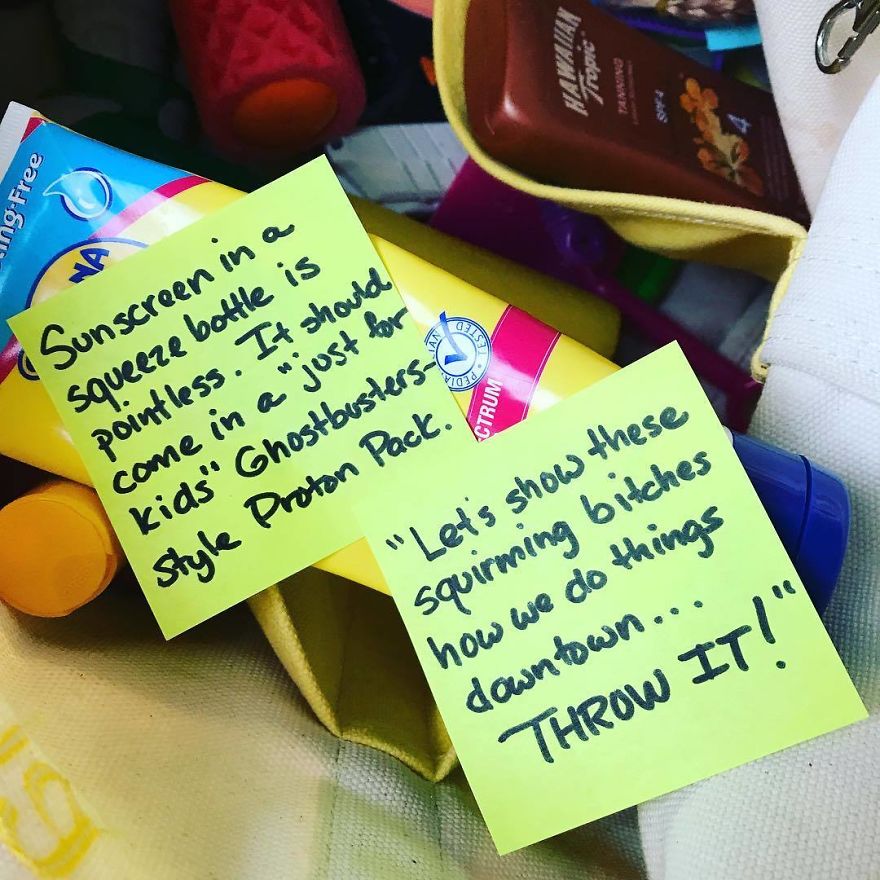 Sunscreen in a
squeeze bottle is
pointless. It should
come in a "just for
kids" Ghostbusters-
style Proton Pack.
"Let's show these
squirming bitches
how we do things
downtown...
THROW IT!"
HAWAIIAN
Tropic
TANNING
SPF 4
4
TESTED
CTRUM
ing-Free
NA